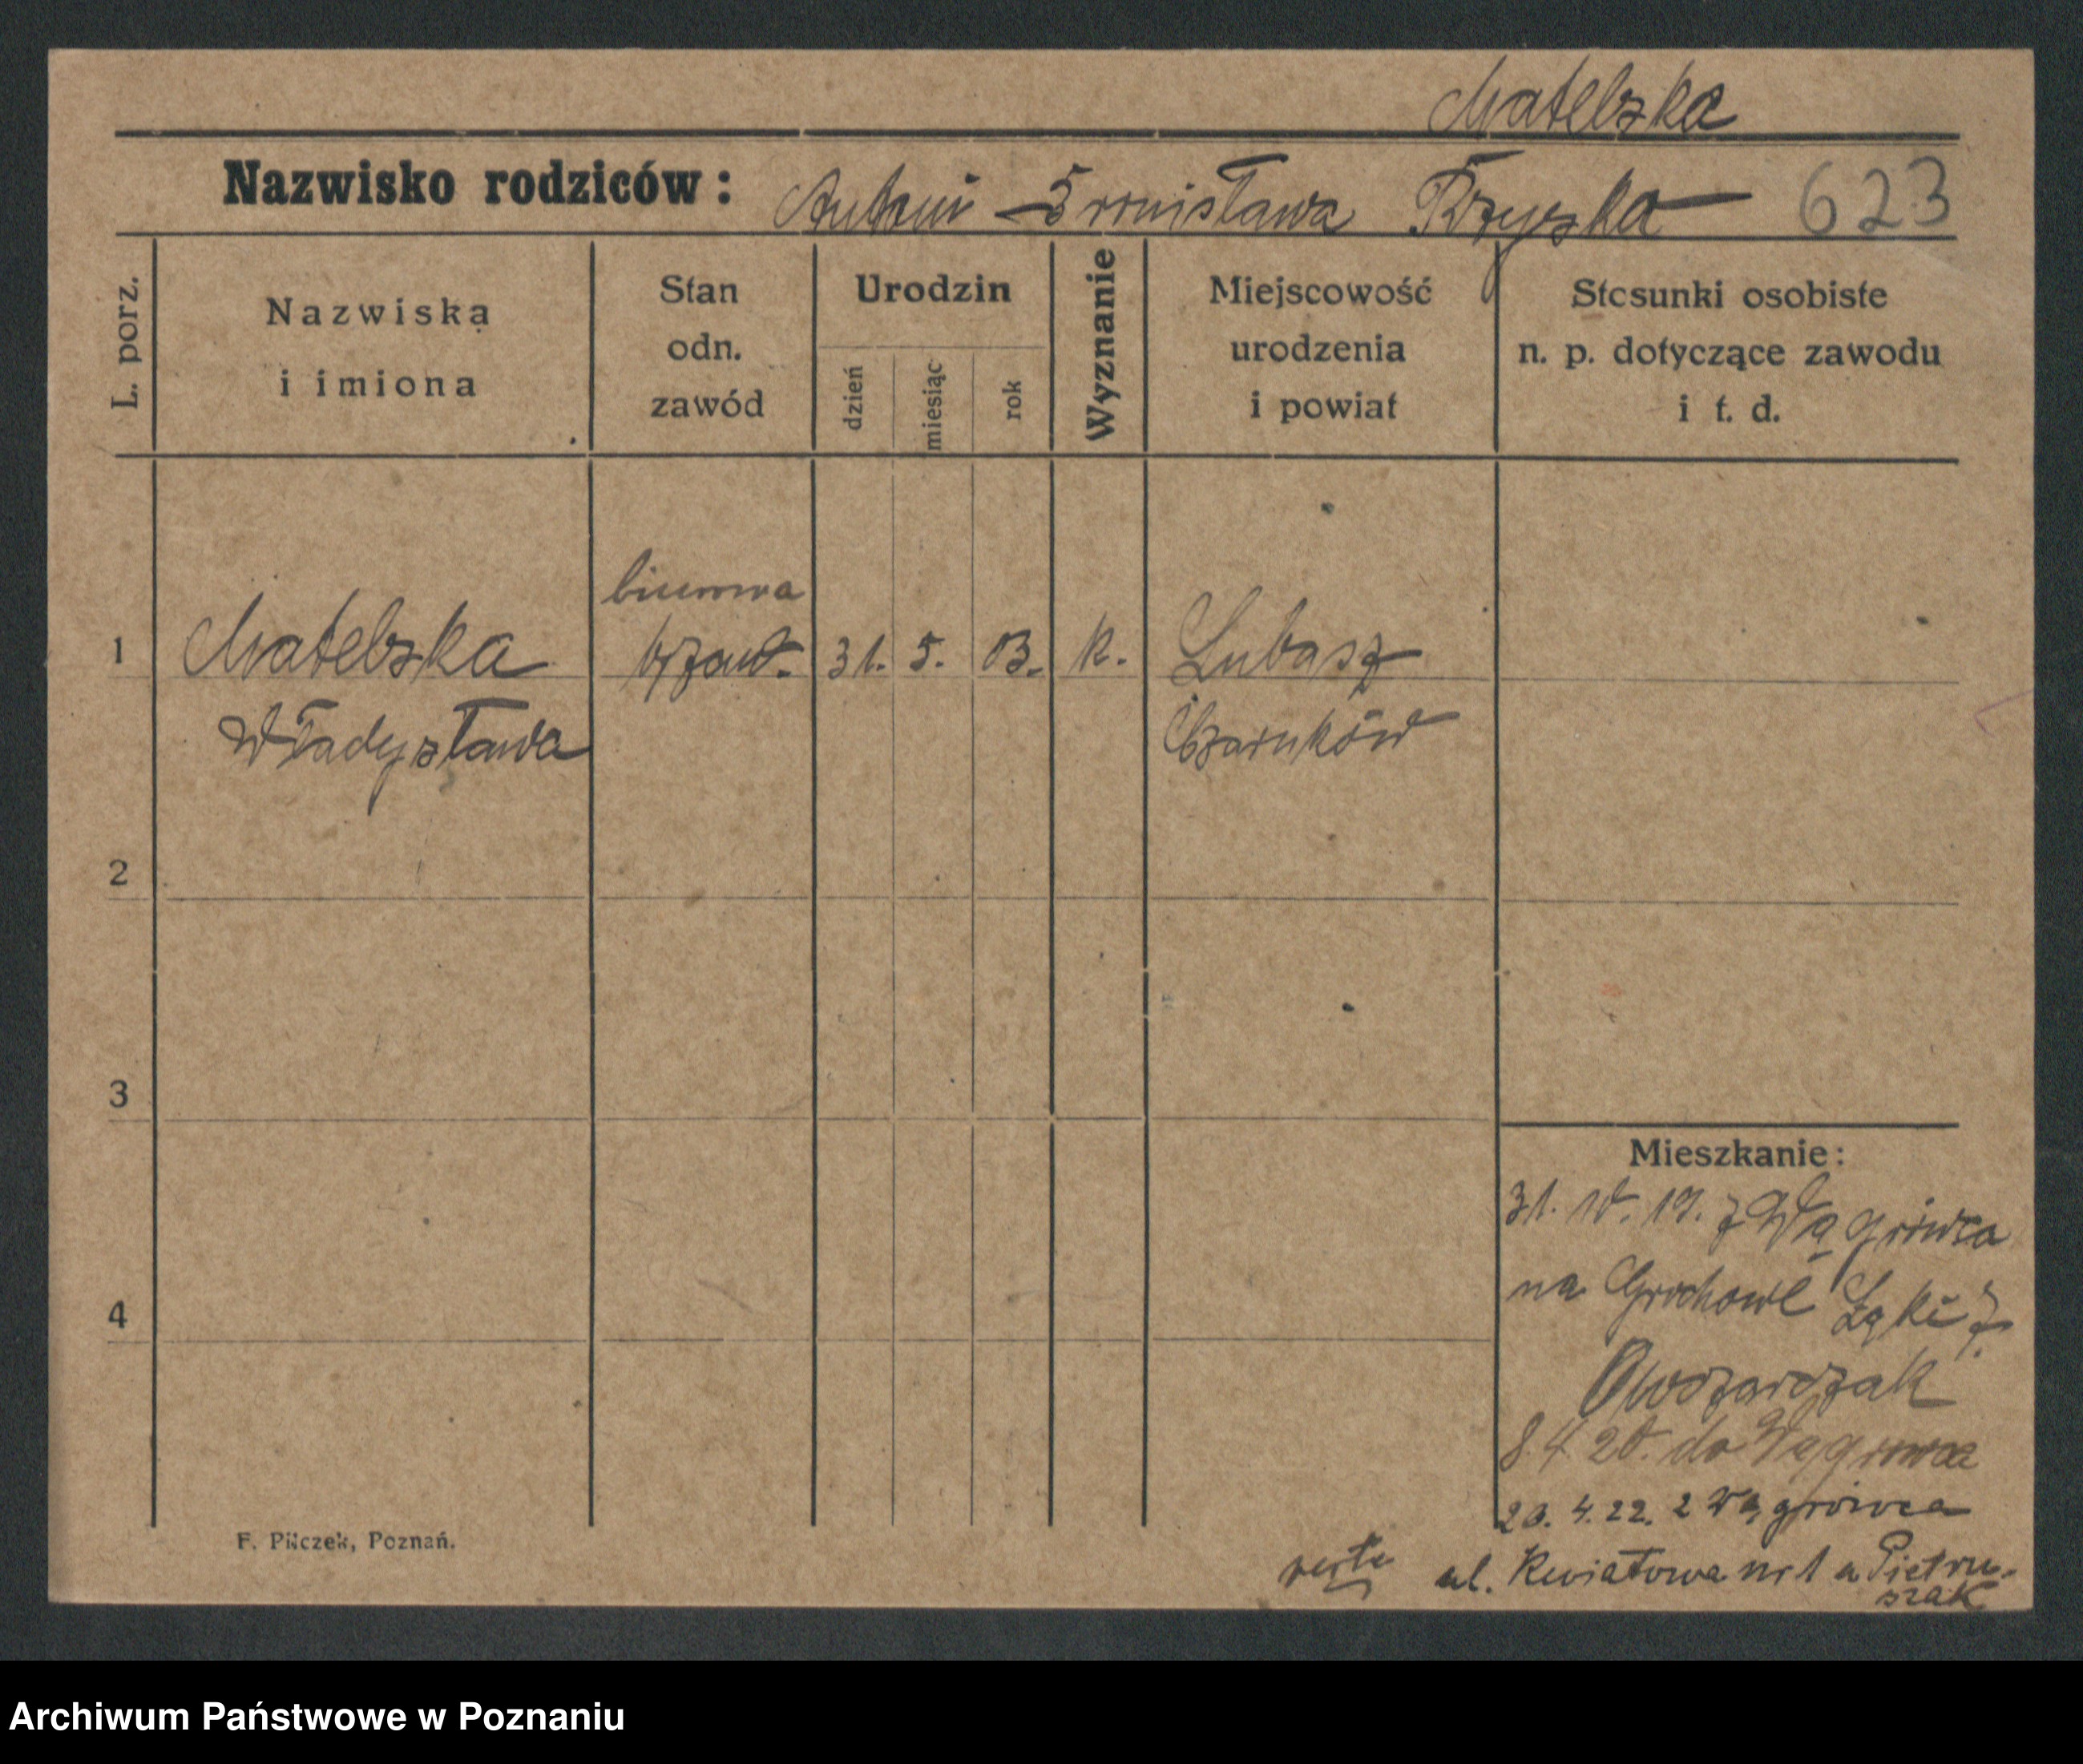 Matelska
Nazwisko rodziców: Antoni - Bronisława Rzyska 623
L. porz.
Nazwiska
i imiona
Stan
odn.
zawód
Urodzin
dzień
miesiąc
rok
Wyznanie
Miejscowość
urodzenia
i powiat
Stosunki osobiste
n. p. dotyczące zawodu
i t. d.
biurowa
1 Matelska 31. 5. 03. k. Lubasz
Władysława Czarnków
2
3
4
Mieszkanie:
31. 10. 19. z Wągrówca
na Grochowe Łąki 7.
Owczarczak
8.4.20. do Wągrowca
20. 4. 22. z Wągrówca
ul. Kwiatowa nr 1 u Pietru-
szak
verte
F. Pilczek, Poznań.
Archiwum Państwowe w Poznaniu